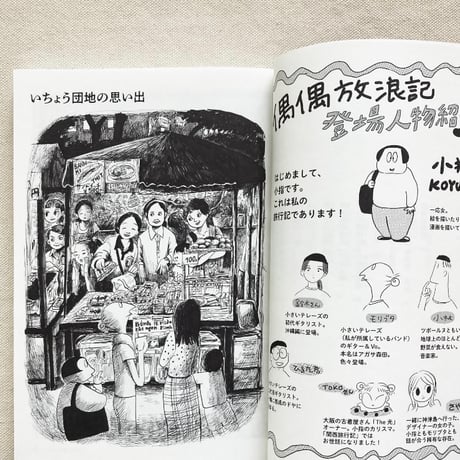 いちょう団地の思い出
100
Bánh mì
偶偶放浪記
登場人物紹
はじめまして、
小指です。
これは私の
旅行記であります!
小指
KOYU
一応女。
絵を描いたり
漫画を描いて
鈴木さん
小さいテレーズの
初代ギタリスト。
沖縄編に登場。
モリブタ
小さいテレーズ
(私が所属しているバンド)
のギター&Vo。
本名はアガサ森田。
色々登場。
ツポールヌともい
地球上のほとんど
野菜が食えない。
音楽家。
テレーズの
ギタリスト。
TOKOさん
大阪の古着屋さん「The 光」
オーナー。小指のカリスマ。
「関西旅行記」では
お世話になりました!
一緒に神津島へ行った
デザイナーの女の子。
小指ともモリブタとも
話が合う稀有な存在。